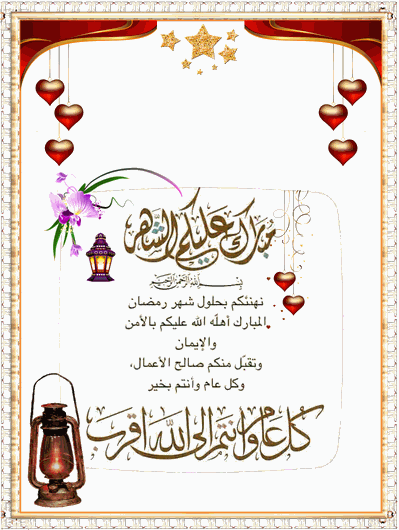 مبارك عليكم الشهر
بسم الله الرحمن الرحيم
نهنئكم بحلول شهر رمضان
المبارك أهلّه الله عليكم بالأمن
والإيمان
وتقبّل منكم صالح الأعمال،
وكل عام وأنتم بخير
كل عام وأنتم إلى الله أقرب